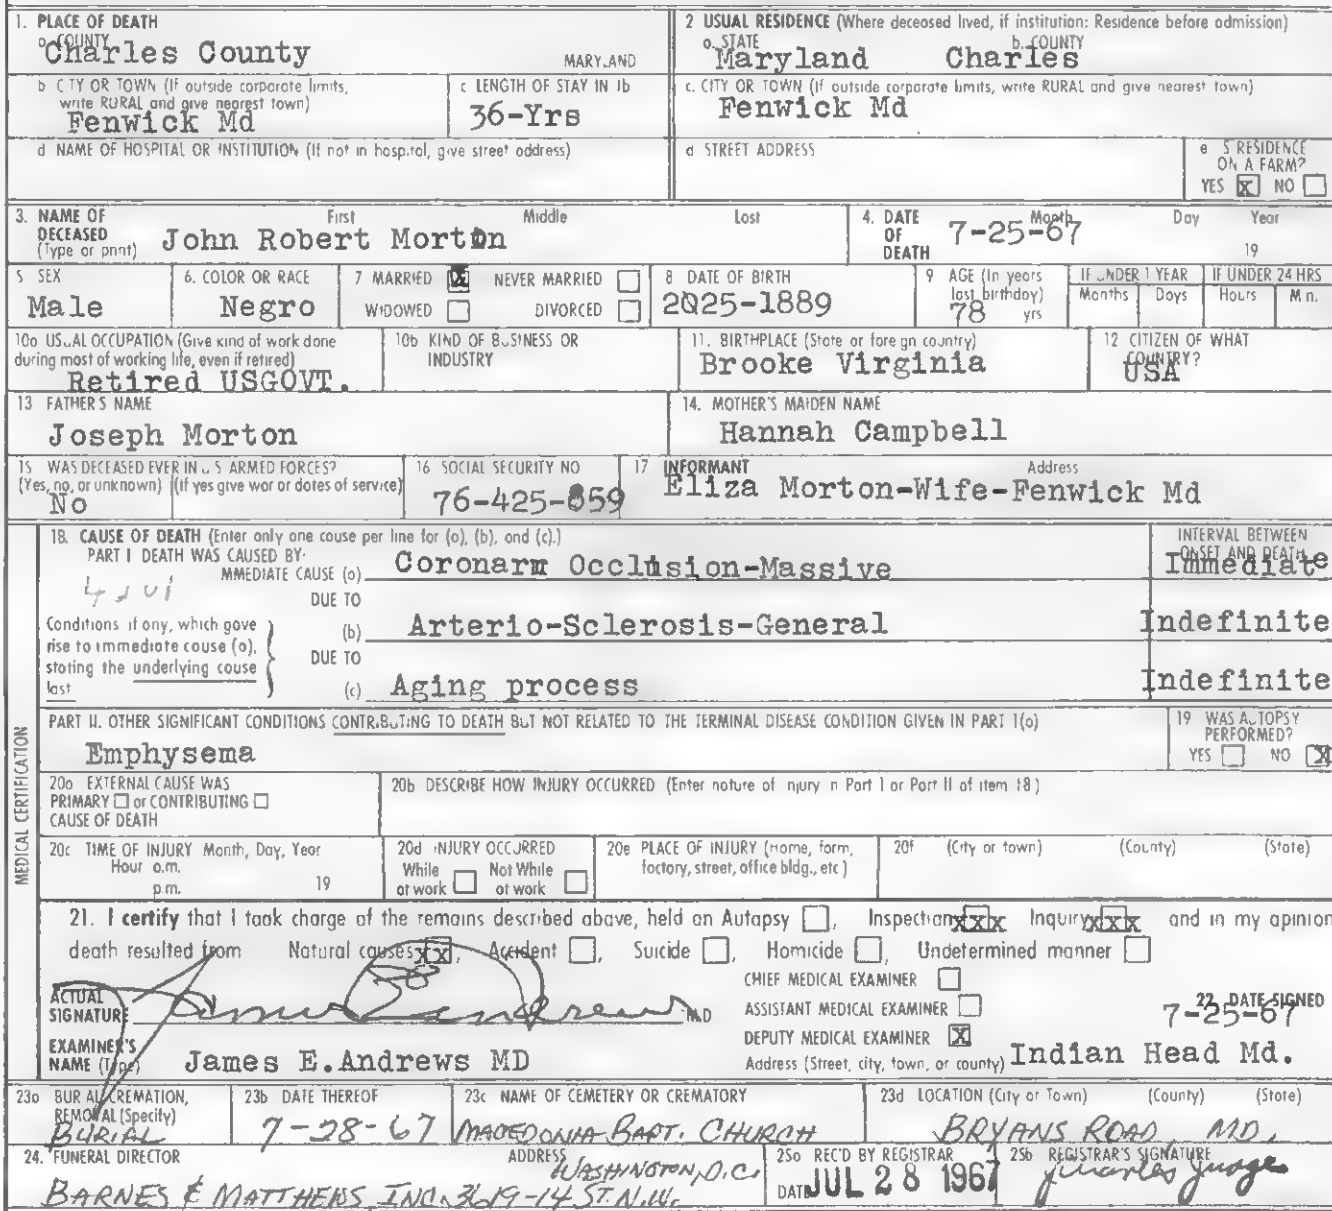 1. PLACE OF DEATH
a. COUNTY
Charles County MARYLAND
2 USUAL RESIDENCE (Where deceased lived, if institution: Residence before admission)
a. STATE b. COUNTY
Maryland Charles
b CITY OR TOWN (If outside corporate limits, write RURAL and give nearest town)
Fenwick Md
c LENGTH OF STAY IN 1b
36-Yrs
c. CITY OR TOWN (If outside corporate limits, write RURAL and give nearest town)
Fenwick Md
d NAME OF HOSPITAL OR INSTITUTION (If not in hospital, give street address)
d STREET ADDRESS
e IS RESIDENCE ON A FARM?
YES X NO
3. NAME OF DECEASED (Type or print)
First Middle Last
John Robert Morton
4. DATE OF DEATH
Month Day Year
7-25-67 19
5 SEX
Male
6. COLOR OR RACE
Negro
7 MARRIED X NEVER MARRIED
WIDOWED DIVORCED
8 DATE OF BIRTH
2025-1889
9 AGE (In years last birthday)
78 yrs
IF UNDER 1 YEAR
Months Days
IF UNDER 24 HRS
Hours Min.
10a USUAL OCCUPATION (Give kind of work done during most of working life, even if retired)
Retired USGOVT.
10b KIND OF BUSINESS OR INDUSTRY
11. BIRTHPLACE (State or foreign country)
Brooke Virginia
12 CITIZEN OF WHAT COUNTRY?
USA
13 FATHER'S NAME
Joseph Morton
14. MOTHER'S MAIDEN NAME
Hannah Campbell
15 WAS DECEASED EVER IN U S ARMED FORCES?
(Yes, no, or unknown) (If yes give war or dates of service)
No
16 SOCIAL SECURITY NO
76-425-859
17 INFORMANT Address
Eliza Morton-Wife-Fenwick Md
MEDICAL CERTIFICATION
18. CAUSE OF DEATH (Enter only one cause per line for (a), (b), and (c).)
PART I DEATH WAS CAUSED BY:
IMMEDIATE CAUSE (a) Coronarm Occlusion-Massive
INTERVAL BETWEEN ONSET AND DEATH
Immediate
DUE TO
Conditions if any, which gave rise to immediate cause (a), stating the underlying cause last
(b) Arterio-Sclerosis-General Indefinite
DUE TO
(c) Aging process Indefinite
PART II. OTHER SIGNIFICANT CONDITIONS CONTRIBUTING TO DEATH BUT NOT RELATED TO THE TERMINAL DISEASE CONDITION GIVEN IN PART I(a)
Emphysema
19 WAS AUTOPSY PERFORMED?
YES NO X
20a EXTERNAL CAUSE WAS
PRIMARY or CONTRIBUTING
CAUSE OF DEATH
20b DESCRIBE HOW INJURY OCCURRED (Enter nature of injury in Part I or Part II of item 18)
20c TIME OF INJURY Month, Day, Year
Hour a.m.
p.m. 19
20d INJURY OCCURRED
While at work Not While at work
20e PLACE OF INJURY (Home, farm, factory, street, office bldg., etc)
20f (City or town) (County) (State)
21. I certify that I took charge of the remains described above, held an Autopsy , Inspection xxx Inquiry xxx and in my opinion
death resulted from Natural causes xx, Accident , Suicide , Homicide , Undetermined manner
ACTUAL SIGNATURE James E. Andrews M.D
CHIEF MEDICAL EXAMINER
ASSISTANT MEDICAL EXAMINER
DEPUTY MEDICAL EXAMINER X
22. DATE SIGNED
7-25-67
EXAMINER'S NAME (Type) James E.Andrews MD
Address (Street, city, town, or county) Indian Head Md.
23a BURIAL, CREMATION, REMOVAL (Specify)
BURIAL
23b DATE THEREOF
7-28-67
23c NAME OF CEMETERY OR CREMATORY
MACEDONIA BAPT. CHURCH
23d LOCATION (City or Town) (County) (State)
BRYANS ROAD, MD.
24. FUNERAL DIRECTOR ADDRESS
WASHINGTON, D.C.
BARNES & MATTHEWS INC. 3619-14 ST. N.W.
25a REC'D BY REGISTRAR
DATE JUL 28 1967
25b REGISTRAR'S SIGNATURE
Charles Judge